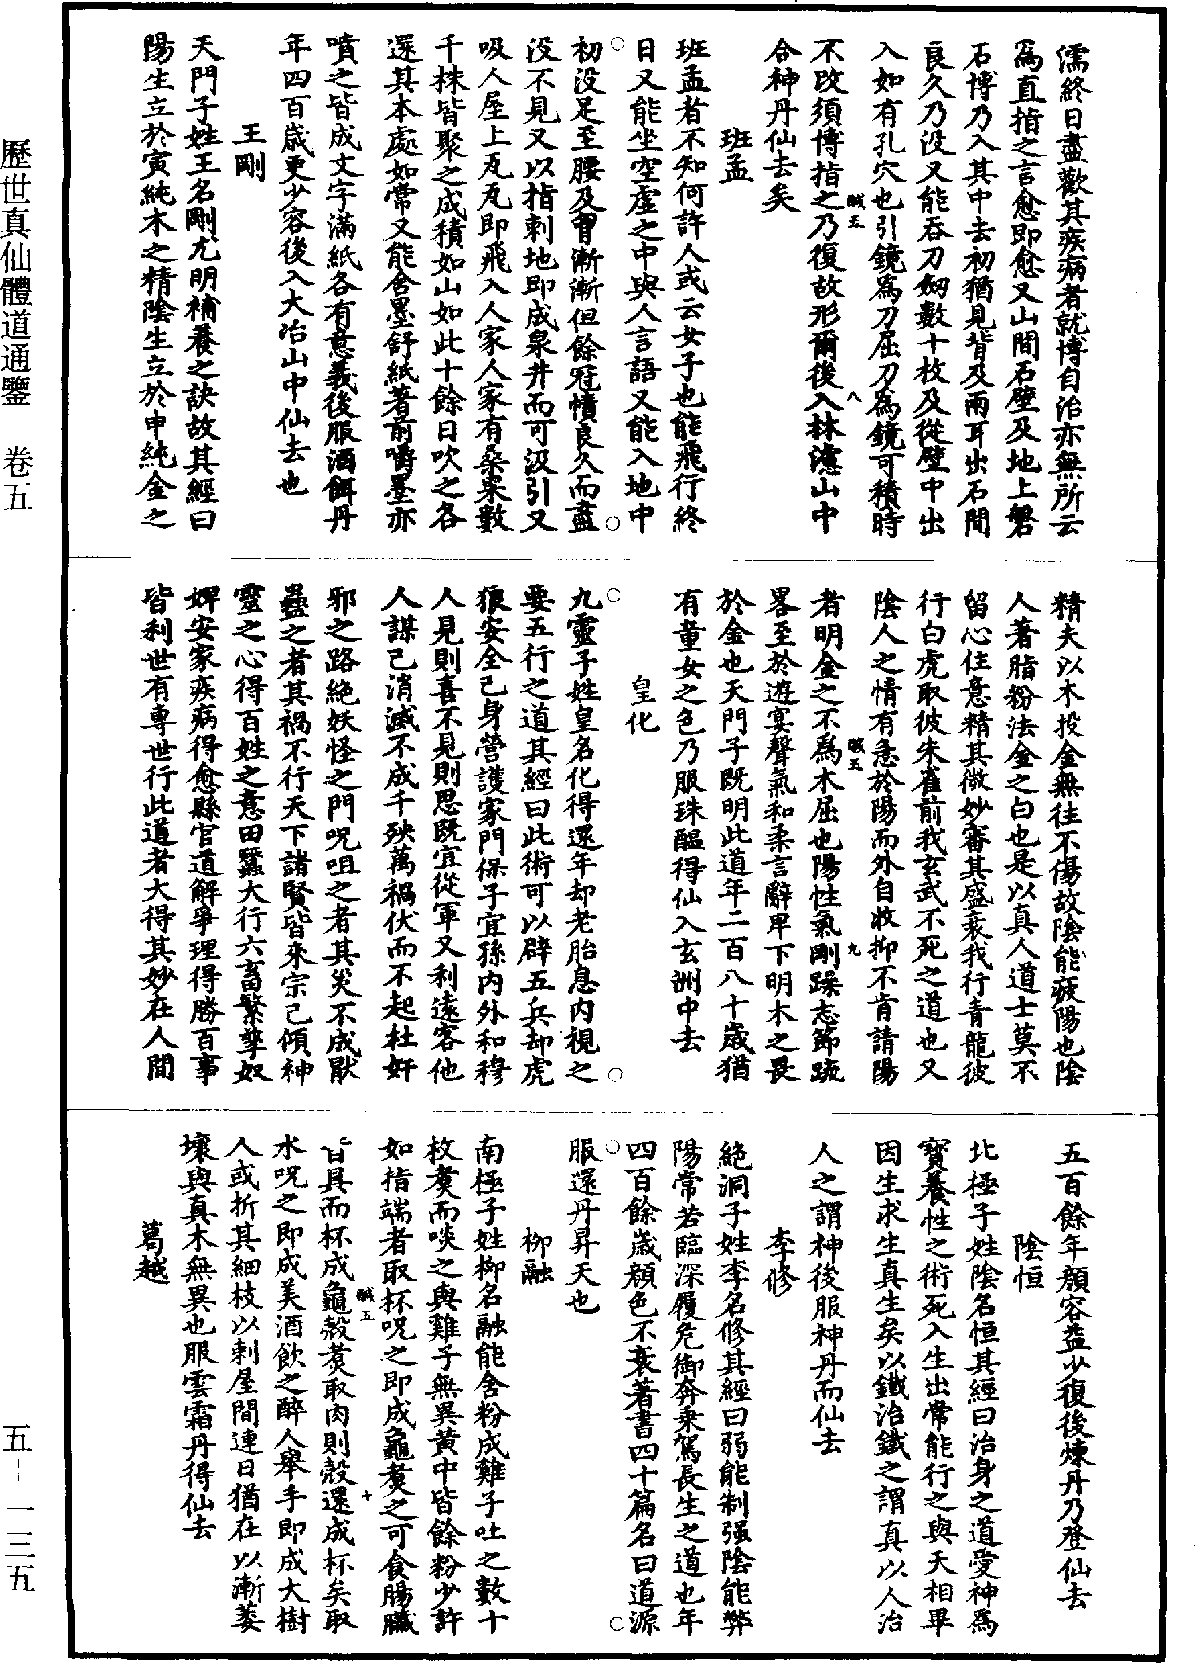 濡終日盡歡其疾病者就博自治亦無所云
爲直指之言愈即愈又山間石壁及地上磐
石博乃入其中去初猶見背及兩耳出石間
良久乃没又能吞刀劒數十枚及從壁中出
入如有孔穴也引鏡爲刀屈刀爲鏡可積時
不改須博指之乃復故形爾後入林慮山中
合神丹仙去矣
班孟
班孟者不知何許人或云女子也能飛行終
日又能坐空虛之中與人言語又能入地中
初没足至腰及胷漸漸但餘冠幘良久而盡
没不見又以指刺地即成泉井而可汲引又
吸人屋上瓦瓦即飛入人家人家有桑果數
千株皆聚之成積如山如此十餘日吹之各
還其本處如常又能含墨舒紙著前嚼墨亦
噴之皆成文字滿紙各有意義後服酒餌丹
年四百歲更少容後入大治山中仙去也
王剛
天門子姓王名剛尤明補養之訣故其經曰
陽生立於寅純木之精陰生立於申純金之
精夫以木投金無往不傷故陰能疲陽也陰
人著脂粉法金之白也是以真人道士莫不
留心住意精其微妙審其盛衰我行青龍彼
行白虎取彼朱雀前我玄武不死之道也又
陰人之情有急於陽而外自收抑不肯請陽
者明金之不爲木屈也陽性氣剛躁志節疏
畧至於遊宴聲氣和柔言辭卑下明木之畏
於金也天門子既明此道年二百八十歲猶
有童女之色乃服珠醞得仙入玄洲中去
皇化
九靈子姓皇名化得還年却老胎息内視之
要五行之道其經曰此術可以辟五兵却虎
狼安全己身營護家門保子宜孫内外和穆
人見則喜不見則思既宜從軍又利遠客他
人謀己消滅不成千殃萬禍伏而不起杜奸
邪之路絶妖怪之門呪咀之者其災不成厭
蠱之者其禍不行天下諸賢皆來宗己傾神
靈之心得百姓之意田蠶大行六畜繁孳奴
婢安家疾病得愈縣官道解爭理得勝百事
皆利世有專世行此道者大得其妙在人間
五百餘年顏容益少復後煉丹乃登仙去
陰恒
北極子姓陰名恒其經曰治身之道愛神爲
寶養性之術死入生出常能行之與天相畢
因生求生真生矣以鐵治鐵之謂真以人治
人之謂神後服神丹而仙去
李修
絶洞子姓李名修其經曰弱能制强陰能弊
陽常若臨深履危御奔乘駕長生之道也年
四百餘歲顏色不衰著書四十篇名曰道源
服還丹昇天也
柳融
南極子姓柳名融能含粉成雞子吐之數十
枚煑而啖之與雞子無異黄中皆餘粉少許
如指端者取杯呪之即成龜煑之可食腸臟
皆具而杯成龜殻煑取肉則殻還成杯矣取
水呪之即成美酒飲之醉人舉手即成大樹
人或折其細枝以刺屋間連日猶在以漸萎
壞與真木無異也服雲霜丹得仙去
葛越
歷世真仙體道通鑒　卷五
五-一三五